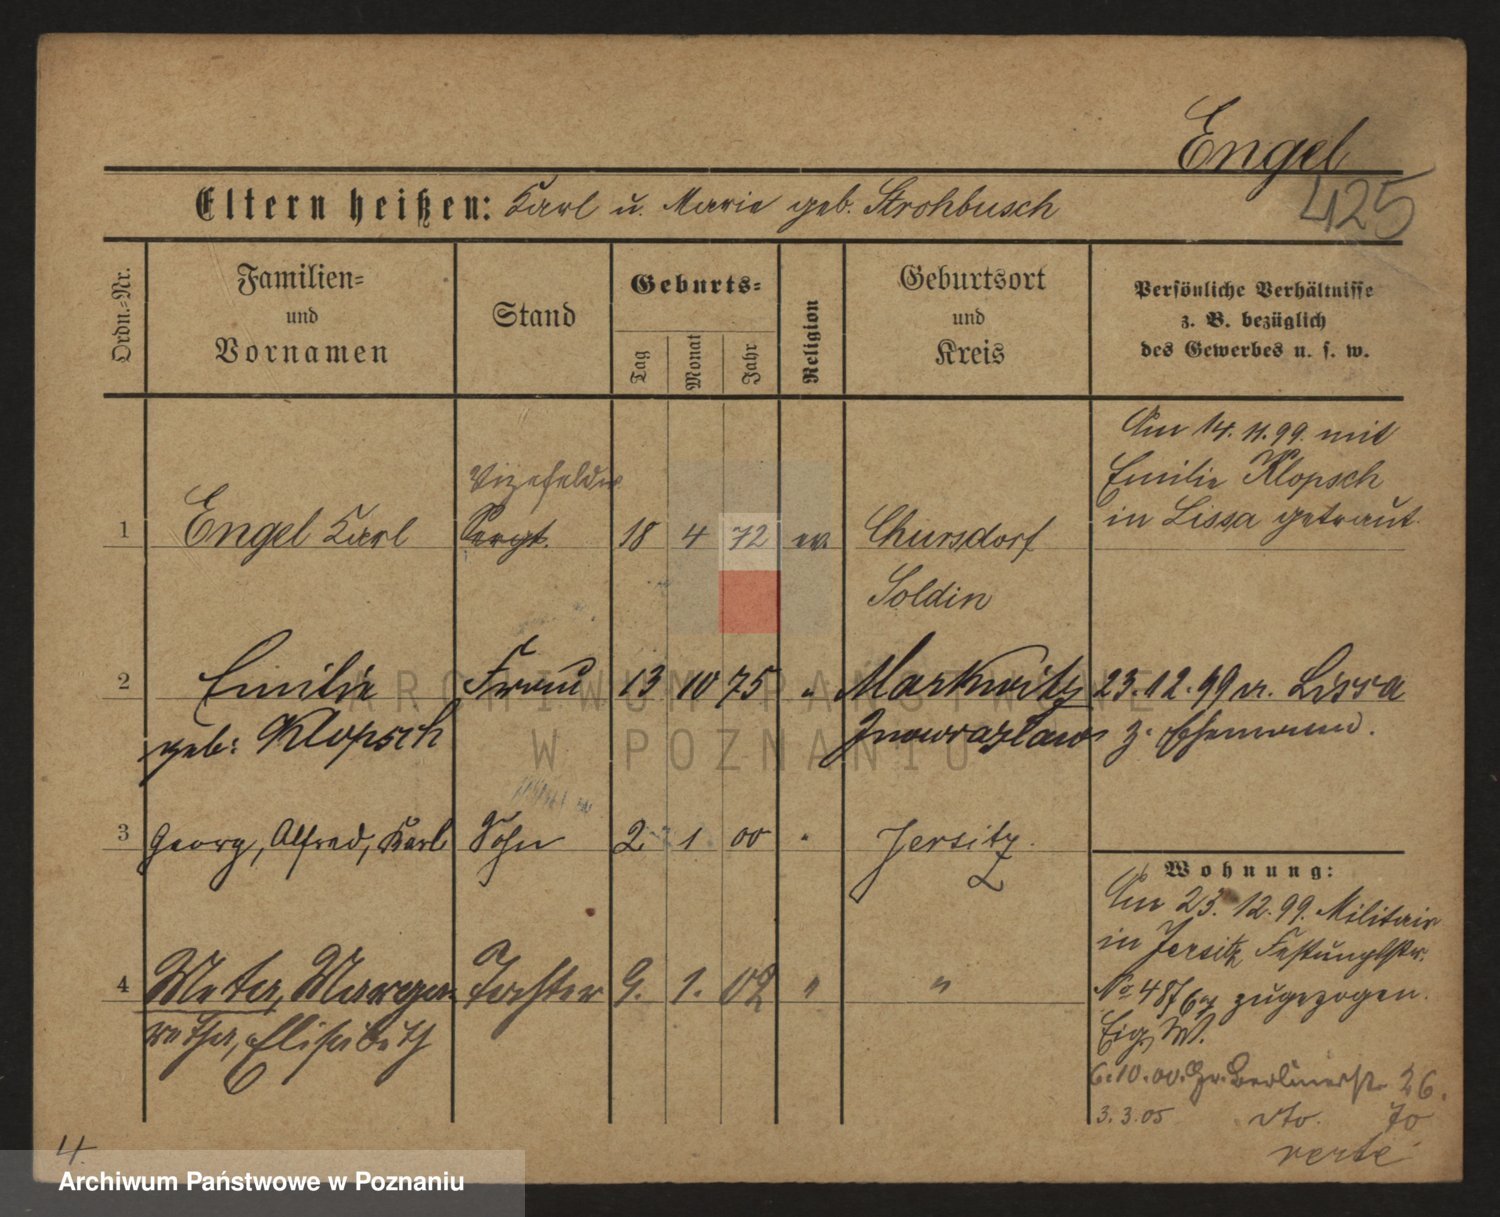 Engel
425
Eltern heißen: Karl u. Marie geb. Strohbusch
Ordn.-Nr.
Familien-
und
Vornamen
Stand
Geburts-
Tag
Monat
Jahr
Religion
Geburtsort
und
Kreis
Persönliche Verhältnisse
z. B. bezüglich
des Gewerbes u. s. w.
Am 14. 11. 99. mit
Emilie Klopsch
in Lissa getraut.
Vizefeldw
1 Engel Karl Sergt. 18 4 72 ev. Chursdorf
Soldin
2 Emilie Frau 13 10 75 " Markwitz 23.12.99 v. Lissa
geb: Klopsch Inowrazlaw z. Ehemann.
3 Georg, Alfred, Karl Sohn 2 1 00 " Jersitz.
4 Meta, Marga- Tochter 9. 1. 02 " "
retha, Elisabeth
Wohnung:
Am 23. 12. 99. Militair
in Jersitz Festungsstr.
No 48 zugezogen.
Eig. W.
6.10.00. Gr. Berlinerstr. 26.
3.3.05 dto. 70
verte
4.
ARCHIWUM PAŃSTWOWE
W POZNANIU
Archiwum Państwowe w Poznaniu